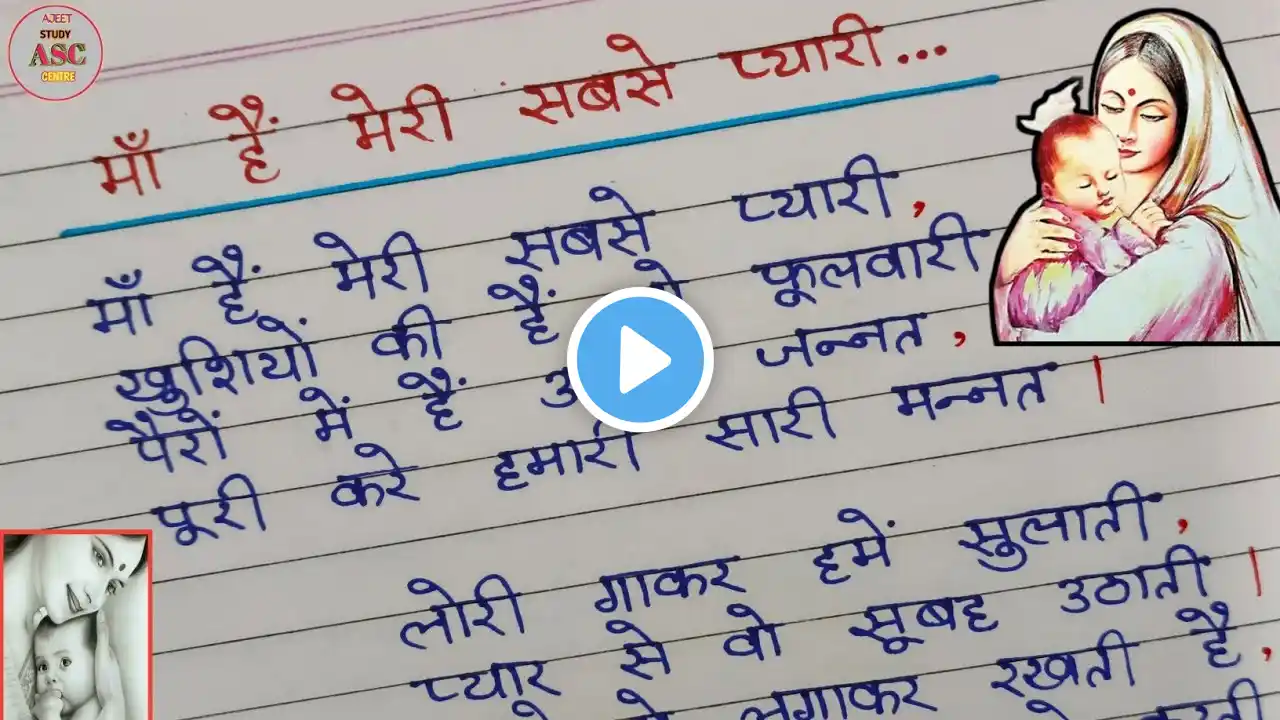 AJEET
STUDY
ASC
CENTRE
माँ हैं मेरी सबसे प्यारी...
माँ हैं मेरी सबसे प्यारी,
खुशियों की हैं फूलवारी
पैरों में हैं जन्नत,
पूरी करे हमारी सारी मन्नत।
लोरी गाकर हमें सुलाती,
प्यार से वो सूबह उठाती।
लगाकर रखती है,